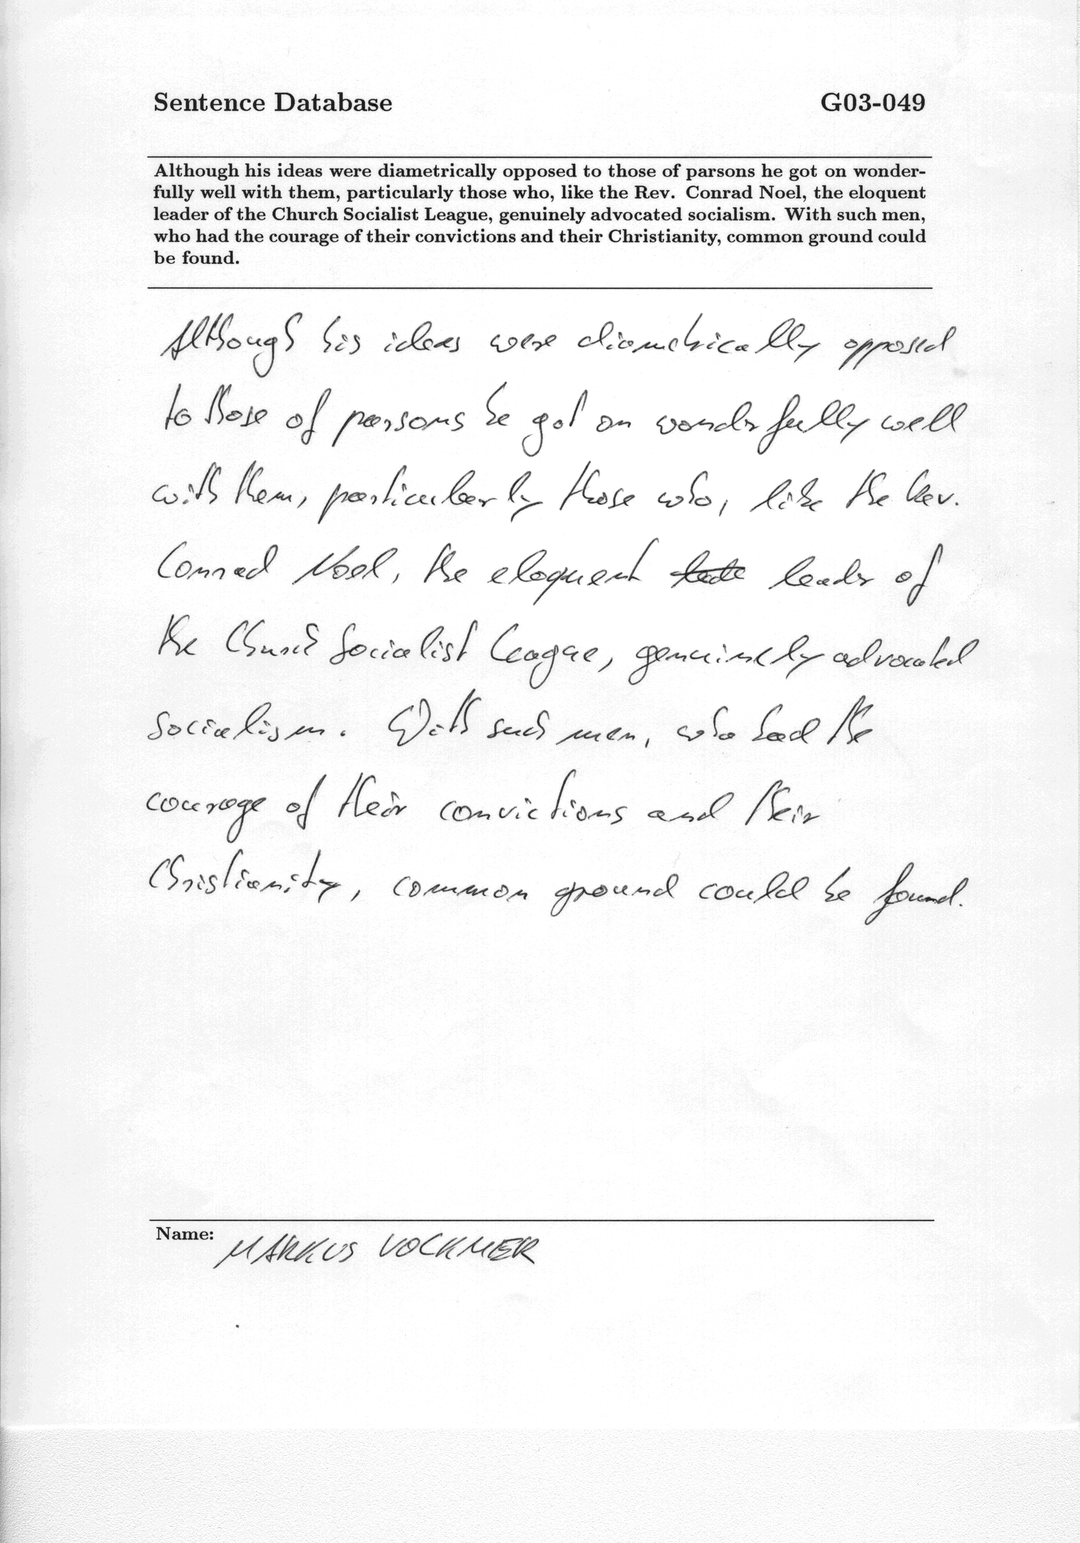 Sentence Database G03-049
Although his ideas were diametrically opposed to those of parsons he got on wonder-
fully well with them, particularly those who, like the Rev. Conrad Noel, the eloquent
leader of the Church Socialist League, genuinely advocated socialism. With such men,
who had the courage of their convictions and their Christianity, common ground could
be found.
Although his ideas were diametrically opposed
to those of parsons he got on wonderfully well
with them, particularly those who, like the Rev.
Conrad Noel, the eloquent leader of
the Church Socialist League, genuinely advocated
socialism. With such men, who had the
courage of their convictions and their
Christianity, common ground could be found.
Name: MARKUS VOCKMER